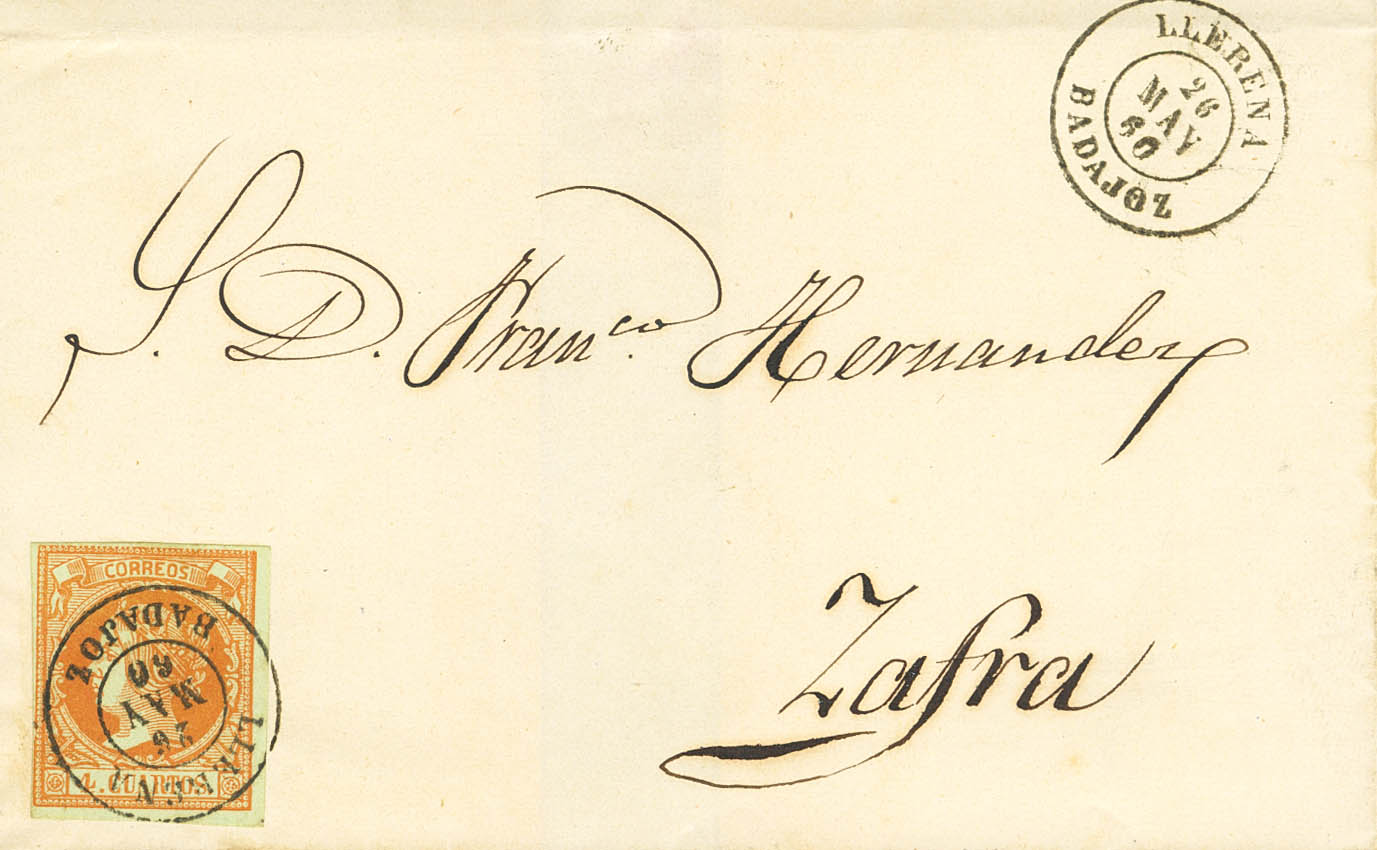 LLERENA
26
MAY
60
BADAJOZ
S. D. Fran.co Hernandez
Zafra
CORREOS
BADAJOZ
60
MAY
26
4. CUARTOS